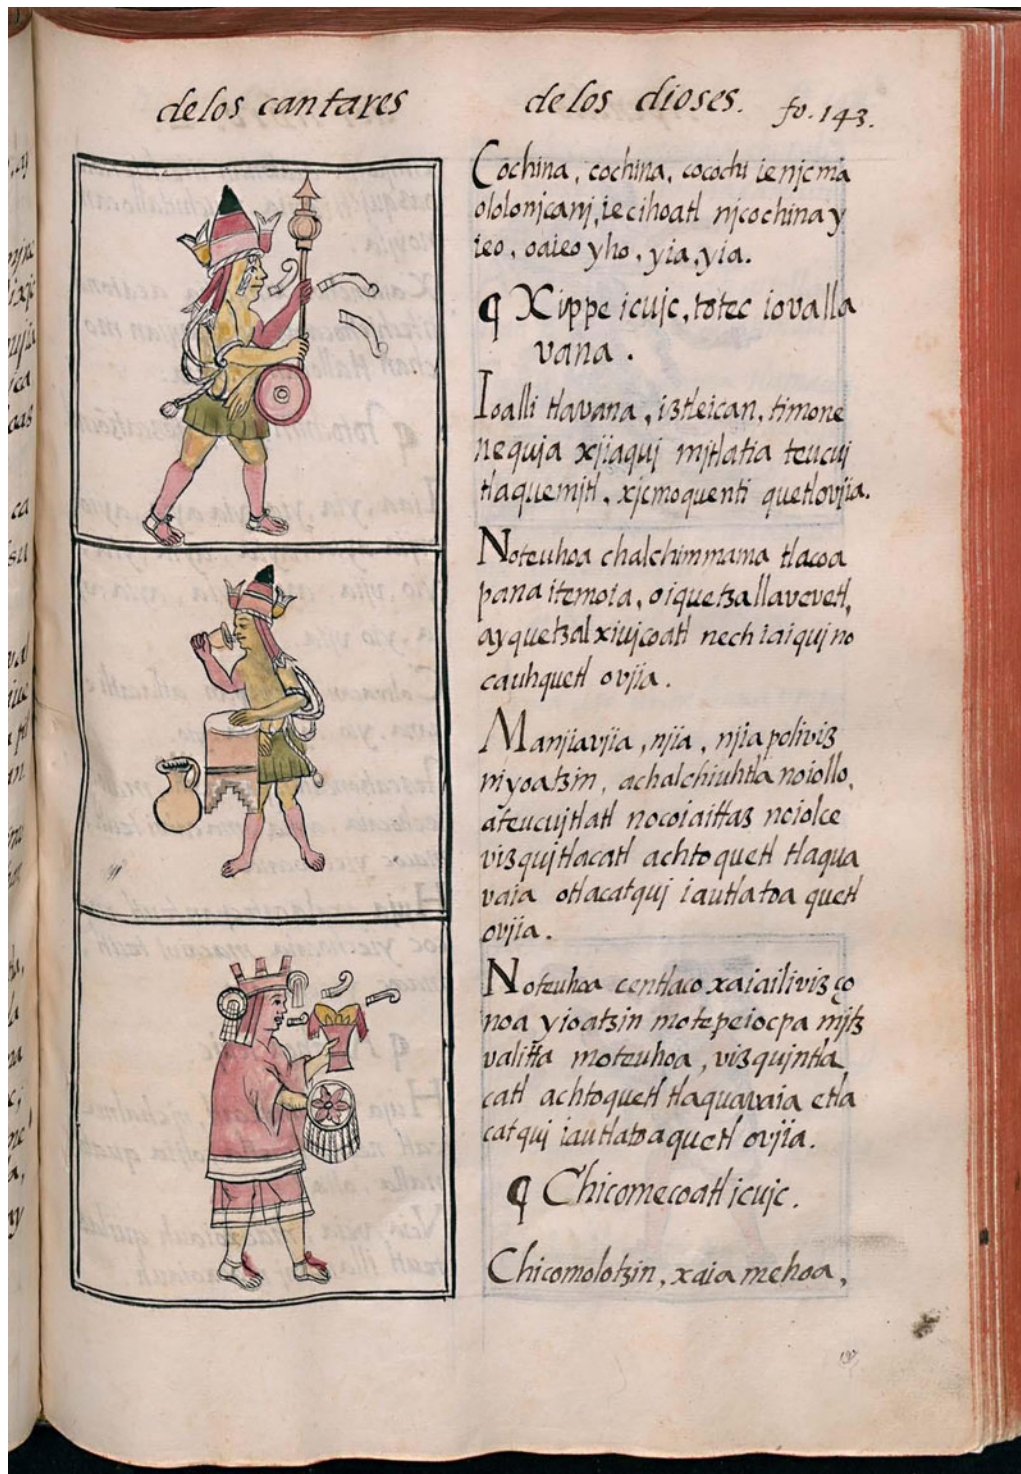 de los cantares
de los dioses. fo. 143.
Cochina, cochina, cocochi ie njcma
ololonjcanj, ie cihoatl njcochina y
ieo, oaieo yho, yia, yia.
¶ Xippe icujc, totec iovalla
vana.
Ioalli tlavana, iztleican, timone
nequja xjiaquj mjtlatia teucuj
tlaquemjtl, xjcmoquenti quetlovjia.
Noteuhoa chalchimmama tlacoa
pana itemoia, oiquetzallavevetl,
ayquetzalxiujcoatl nechiaiqujno
cauhquetl ovjia.
Manjiavjia, njia, njia poliviz
njyoatzin, achalchiuhtla noiollo,
ateucujtlatl nocoiaittaz noiolce
vizqujtlacatl achtoquetl tlaqua
vaia otlacatquj iautlatoa quetl
ovjia.
Noteuhoa centlaco xaiailiviz ço
noa yioatzin motepeiocpa mjtz
valitta moteuhoa, vizqujntla
catl achtoquetl tlaquavaia etla
catquj iautlatoaquetl ovjia.
¶ Chicomecoatl icujc.
Chicomolotzin, xaia mehoa,